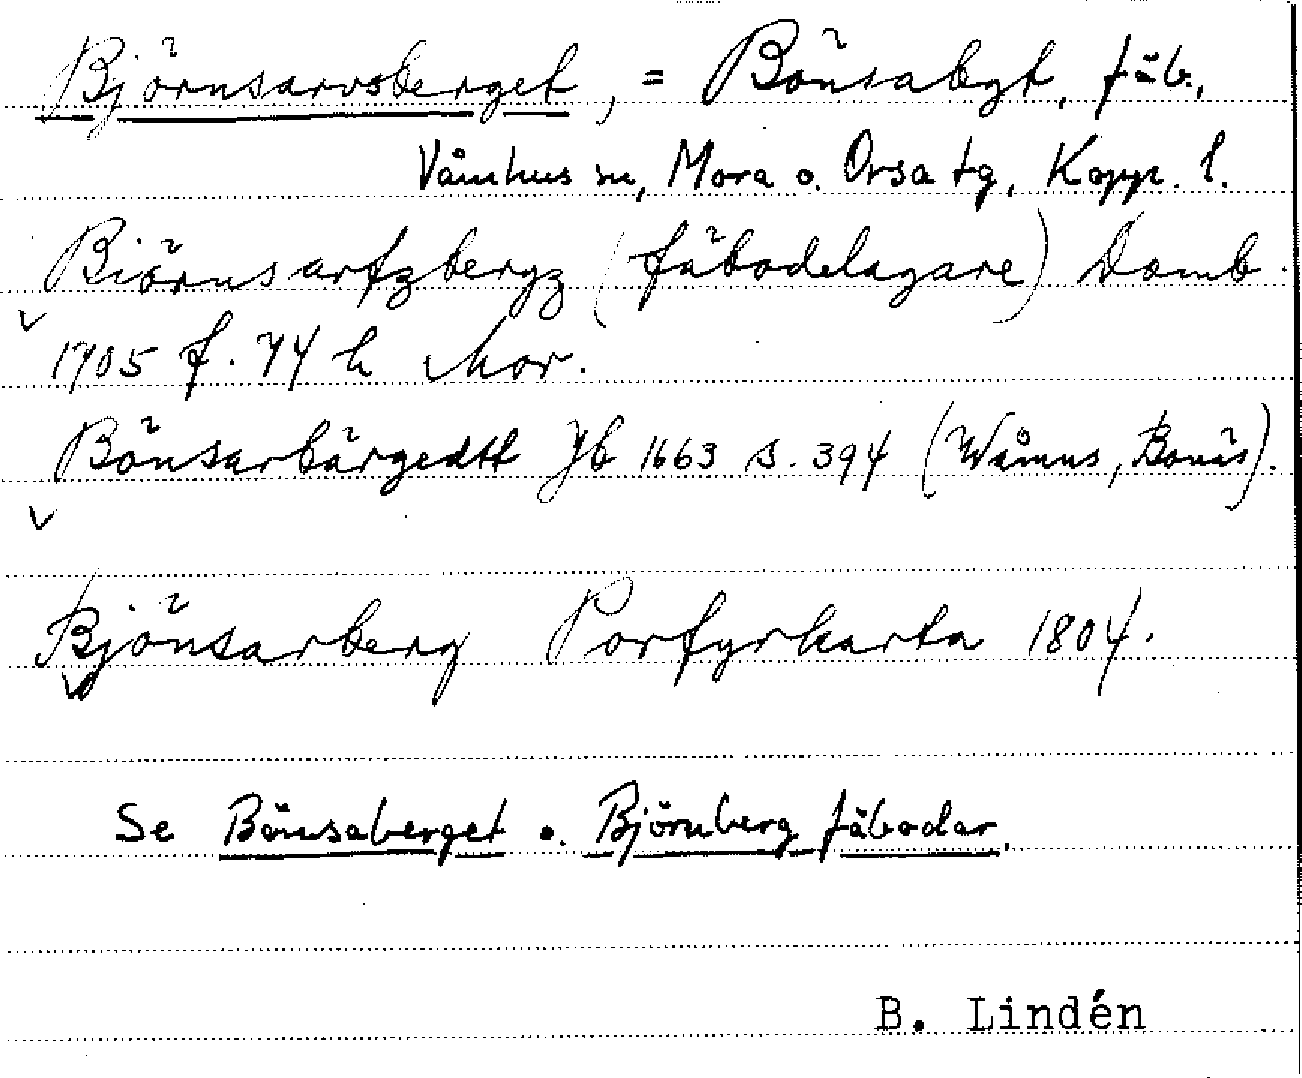 Björnsarvsberget, = Bönsabgt, fäb.,
Våmhus sn, Mora o. Orsa tg, Kopp. l.
Biörnsarfzbergz (fäbodelagare) Domb.
1705 f. 74 h Mor.
Bönsarbärgedtt Jb 1663 s. 394 (Wåmus, Bonäs).
Bjönsarberg Porfyrkarta 1804.
Se Bönsaberget o. Björnberg fäbodar.
B. Lindén